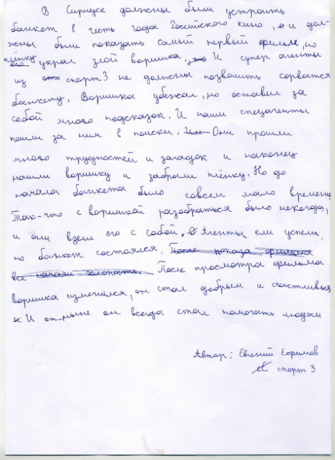 В Сириусе должны были устроить
банкет в честь года Российского кино, и дол-
жны были показать самый первый фильм, но
плёнку украл злой воришка, И супер агенты
из спорт3 не должны позволить сорваться
банкету. Воришка убежал, но оставил за
собой много подсказок. И наши спецагенты
пошли за ним в поиски. Они прошли
много трудностей и загадок и наконец
нашли воришку и забрали плёнку. Но до
начала банкета было совсем мало времени
Так-что с воришкой разобраться было некогда,
и они взяли его с собой. Агенты еле успели,
но банкет состоялся. После показа фильма
все начали хлопать. После просмотра фильма
воришка изменился, он стал добрым и счастливым
И от-ныне он всегда стал помогать людям
Автор: Евгений Ефимов
спорт 3